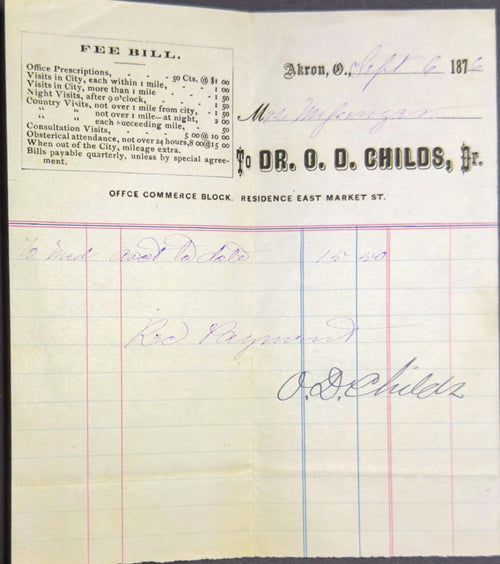 FEE BILL.
Office Prescriptions, - - 50 Cts. @ $1 00
Visits in City, each within 1 mile, - 1 00
Visits in City, more than 1 mile - 1 50
Night Visits, after 9 o'clock, - - 1 50
Country Visits, not over 1 mile from city, - 1 50
" " not over 1 mile—at night, 2 00
" " each succeeding mile, 50
Consultation Visits, - - 5 00 @ 10 00
Obsterical attendance, not over 24 hours, 8 00 @ 15 00
When out of the City, mileage extra.
Bills payable quarterly, unless by special agree-
ment.
Akron, O., Sept 6 1876
Mrs Messenger
To DR. O. D. CHILDS, Dr.
OFFCE COMMERCE BLOCK. RESIDENCE EAST MARKET ST.
To Med acct to date 15 50
Rec Payment
O. D. Childs